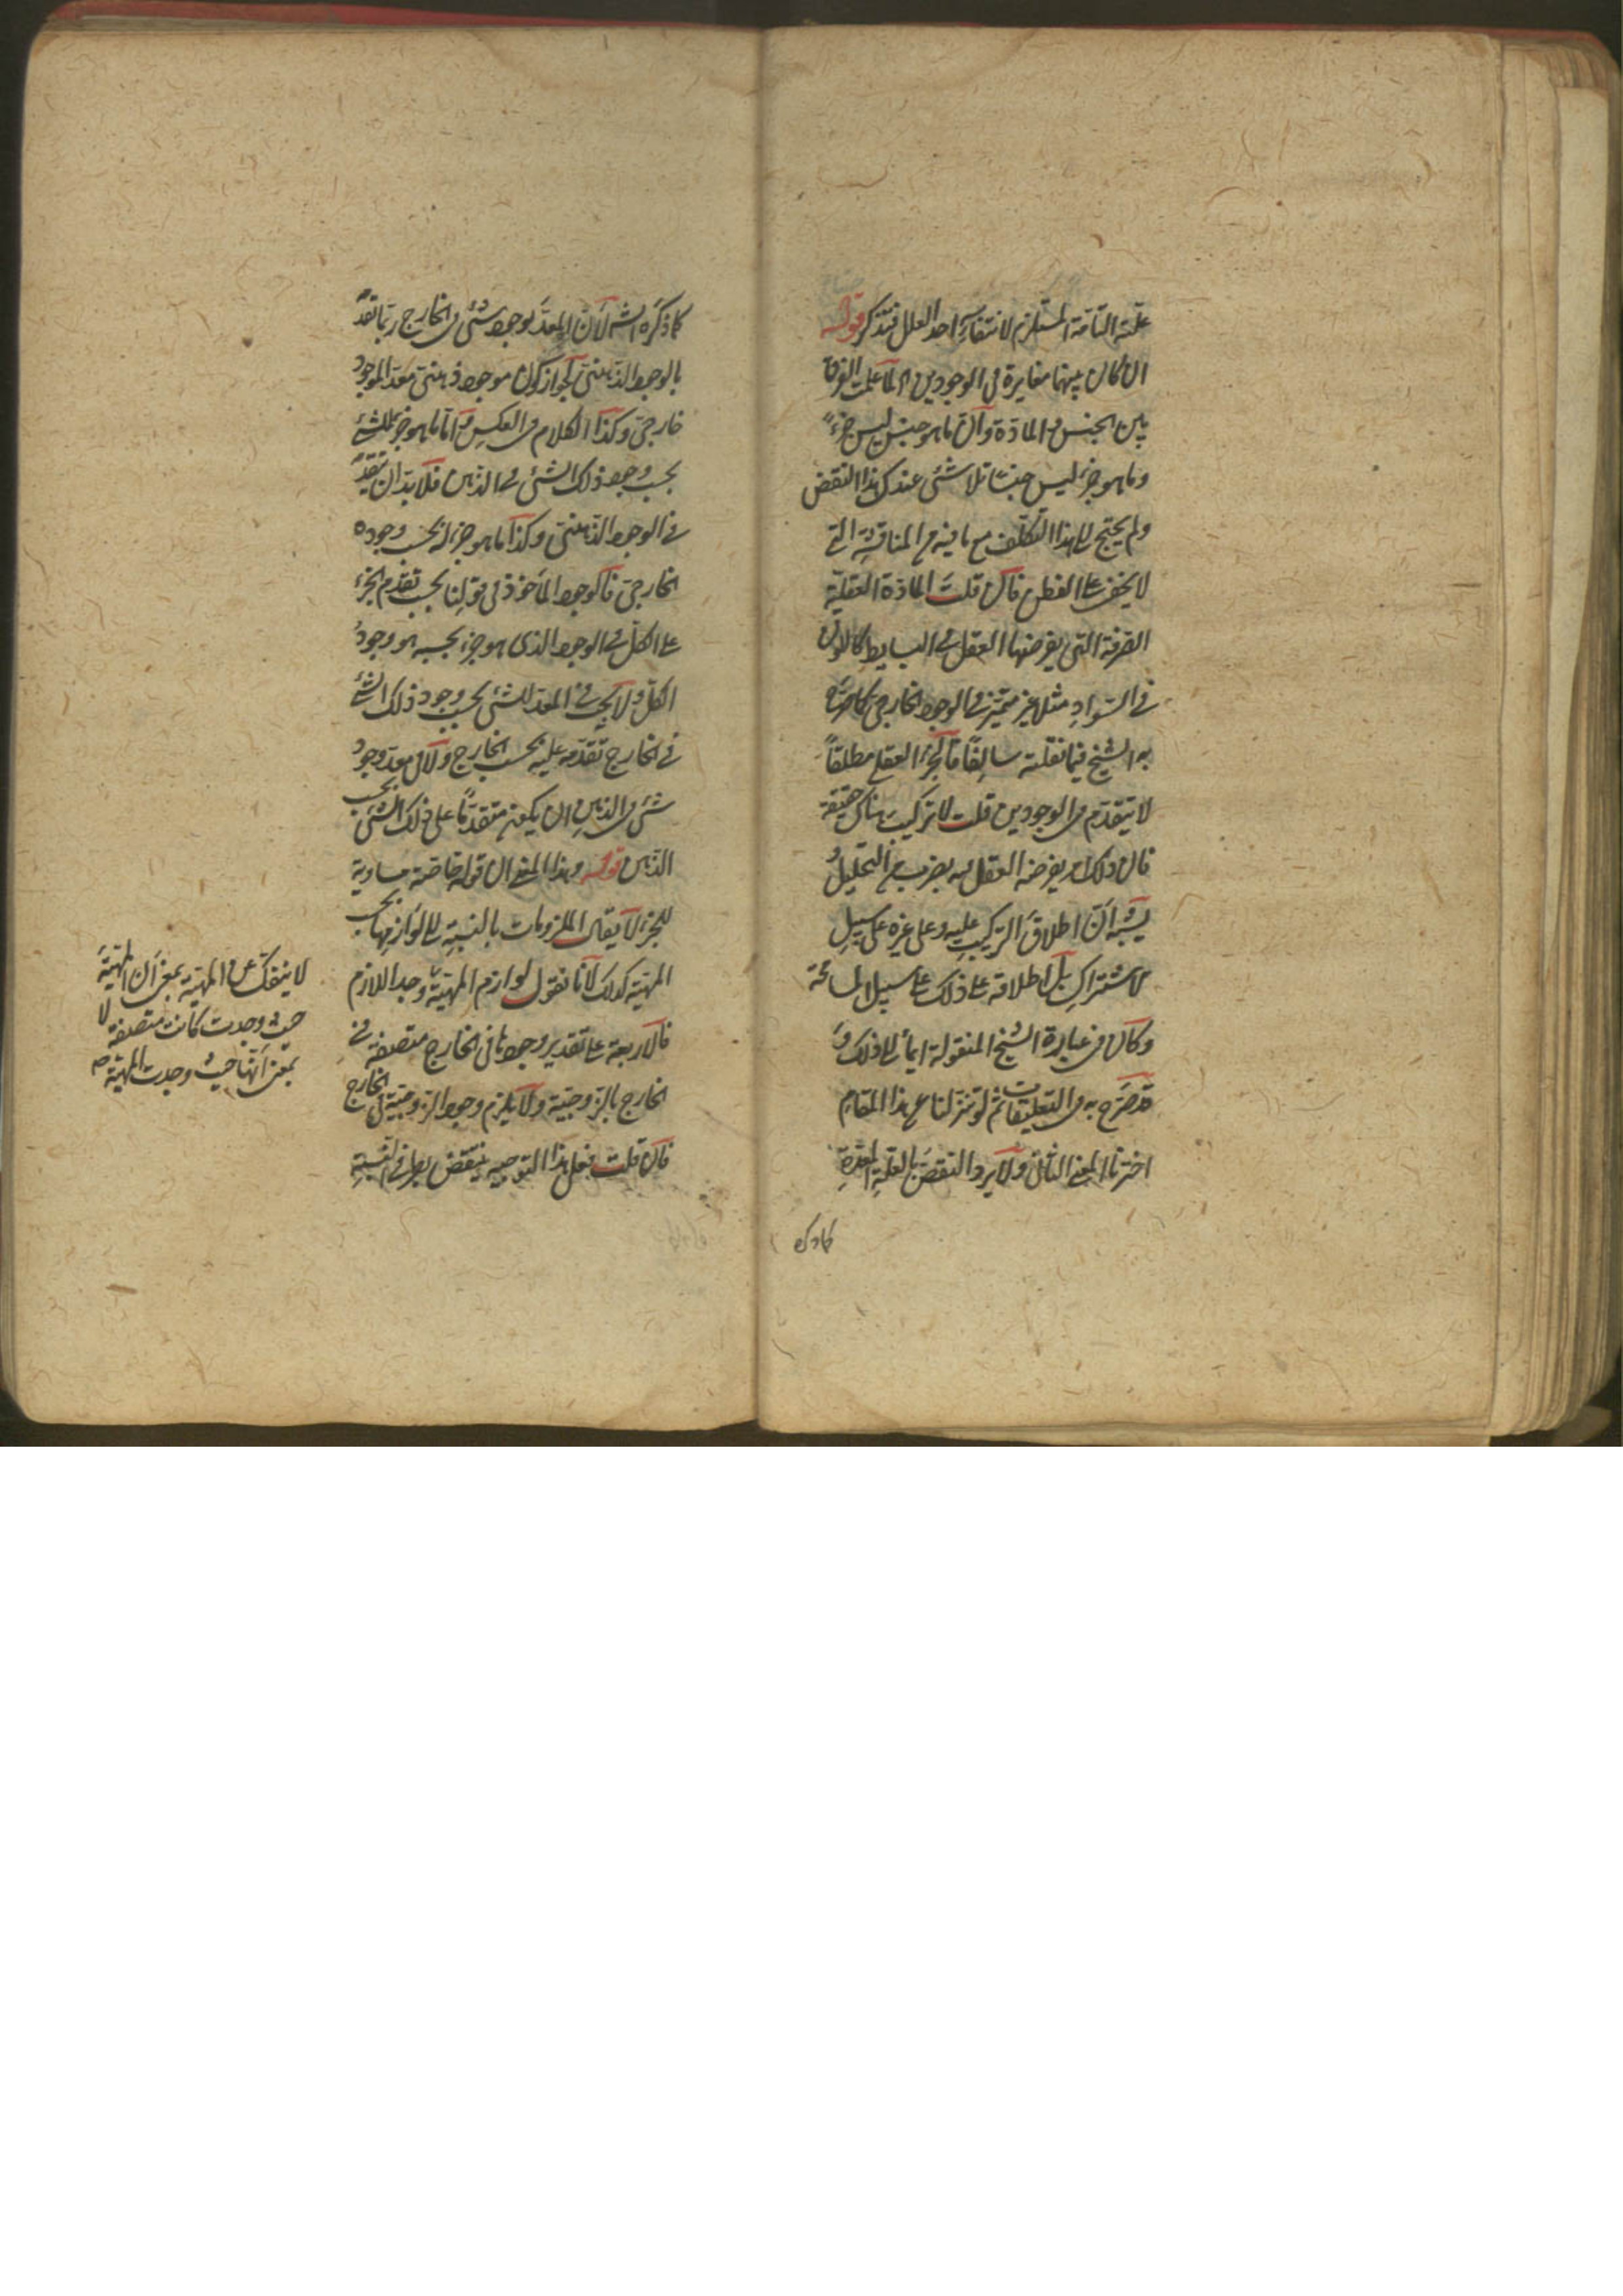 علته التامة المستلزم لانتفاء احد العلل فتذكر قوله
ان كان بينهما مغايرة فى الوجودين لما علمت الفرق
بين الجنس و المادة و ان ما هو جنس ليس جزءً
وما هو جزء ليس جنسا تلاشى عندك هذا النقض
ولم يحتج الى هذا التكلف مع ما فيه من المناقشة التى
لا يخفى على الفطن فان قلت المادة العقلية
الصرفة التى يفرضها العقل فى البسايط كاللون
فى السواد مثلا غير متميز فى الوجود الخارجى كما صرّح
به الشيخ فيما نقلته سالفًا فالجزء العقلى مطلقاً
لا يتقدم فى الوجودين قلت لا تركيب هناك حقيقة
فان ذلك امر يفرضه العقل فيه بضرب من التحليل و
يشبه ان اطلاق التركيب عليه و على غيره على سبيل
الاشتراك بل اطلاقه على ذلك على سبيل المسامحة
وكان فى عبارة الشيخ المنقولة ايماء الى ذلك و
قد صرّح به فى التعليقات ثم لو تنزلنا عن هذا المقام
اخترنا المعنى الثانى ولا يرد النقض بالعلة المعدة
كما ذكره
كما ذكره الش لان المعد لوجود شئ فى الخارج ربما تقدم
بالوجود الذهنى لجواز كون موجود ذهنى معد الموجود
خارجى وكذا الكلام فى العكس و اما ما هو جزء للشئ
بحسب وجود ذلك الشئ فى الذهن فلا بد ان يتقدم
فى الوجود الذهنى وكذا ما هو جزء له بحسب وجوده
الخارجى فالوجود المأخوذ فى قولنا يجب تقدم الجزء
على الكل فى الوجود الذى هو جزء بحسبه هو وجود
الكل و لا يجب فى المعد للشئ بحسب وجود ذلك الشئ
فى الخارج تقدمه عليه بحسب الخارج ولا فى معد وجود
شئ فى الذهن ان يكون متقدمًا على ذلك الشئ بحسب
الذهن قوله وبهذا المعنى ان قوله خاصة مساوية
للجزء لا يقال الملزومات بالنسبة الى لوازمها بحسب
المهية كذلك لانا نقول لوازم المهية وجد اللازم
فالاربعة على تقدير وجودها فى الخارج متصفة فى
الخارج بالزوجية ولا يلزم وجود الزوجية فى الخارج
فان قلت فعلى هذا التوجيه ينتقض بطرفى النسبة
لا ينفك عن المهية بمعنى ان المهية
حيث وجدت كانت متصفة لا
بمعنى انها حيث وجدت المهية